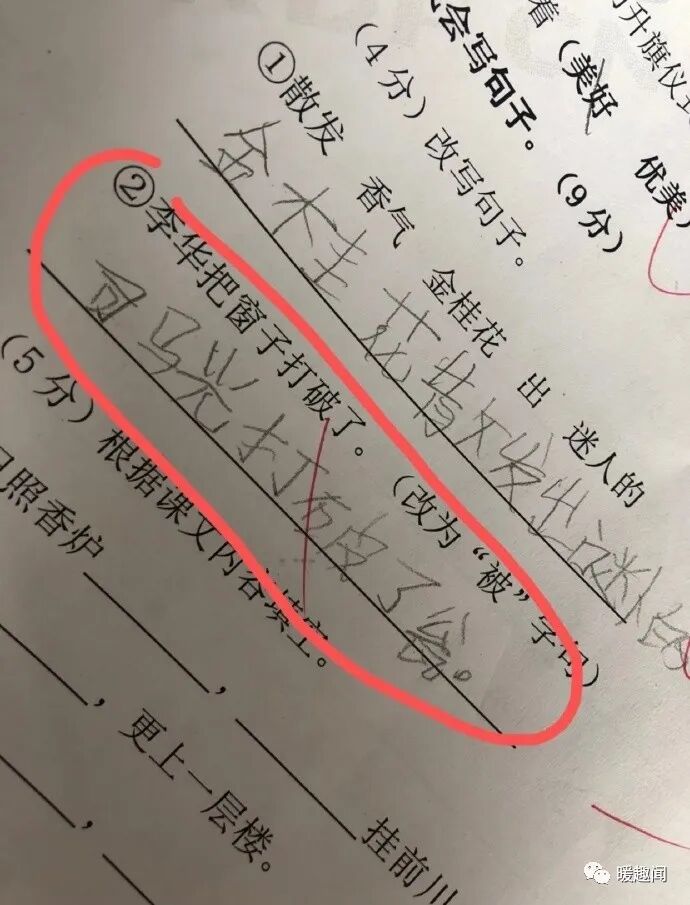 着（美好 优美）
会写句子。（9分）
（4分）改写句子。
①散发 香气 金桂花 出 迷人的
金桂花背欠发出谜人的
②李华把窗子打破了。（改为“被”字句）
司马光打破了翁。
（5分）根据课文内容填空。
日照香炉
，
挂前川
，更上一层楼。
，
暖趣闻